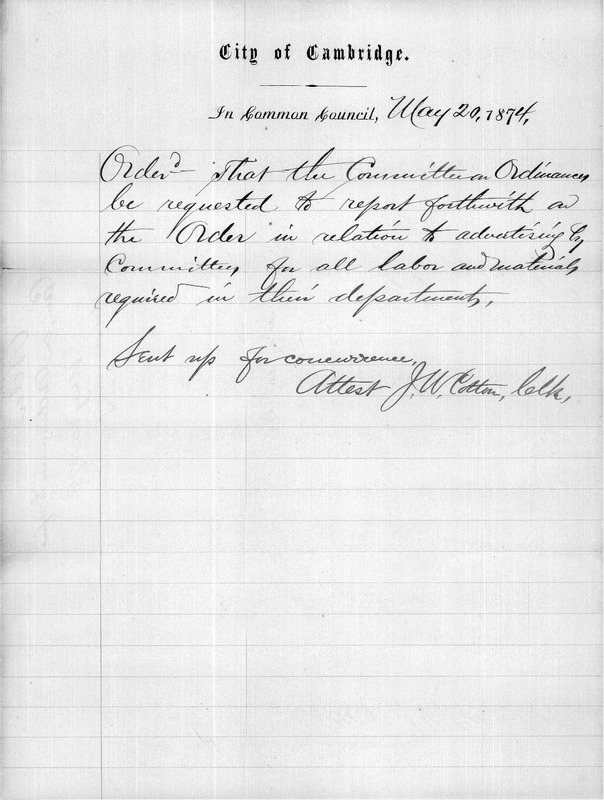 City of Cambridge.
In Common Council, May 20, 1874,
Order'd— That the Committee on Ordinances
be requested to report forthwith on
the Order in relation to advertising by
Committees, for all labor and materials
required in their departments.
Sent up for concurrence,
Attest J. W. Cotton, Clk,